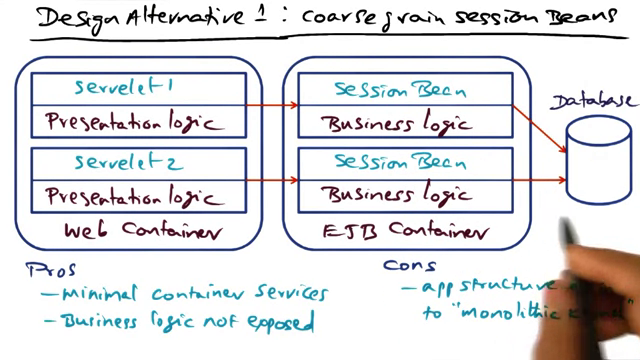 Design Alternative 1: coarse grain session Beans
servelet-1
Presentation logic
servelet-2
Presentation logic
Web Container
Session Bean
Business logic
Session Bean
Business logic
EJB Container
Database
Pros
- Minimal container services
- Business logic not exposed
Cons
- app structure
to "monolithic